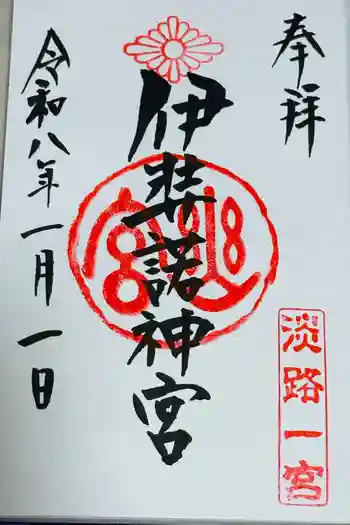 奉拝
伊弉諾神宮
令和八年一月一日
淡路一宮